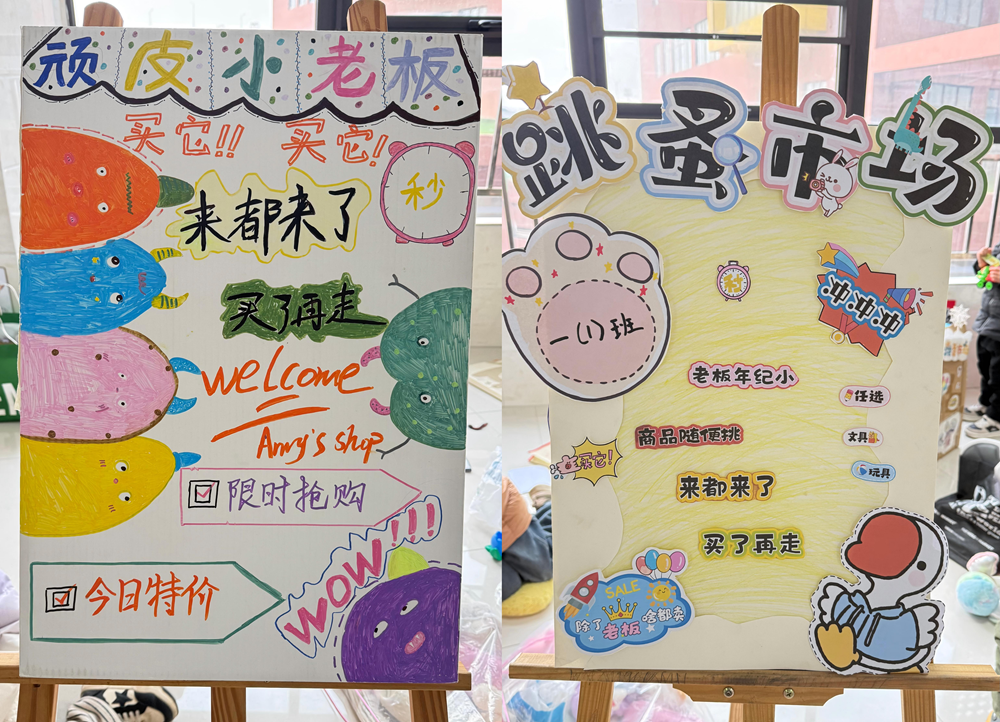 顽皮小老板
买它!! 买它!
秒
来都来了
买了再走
welcome
Anny's shop
限时抢购
WOW!!!
今日特价
跳蚤市场
一(1)班
秒
冲.冲.冲
老板年纪小
任选
商品随便挑
文具
买它!
玩具
来都来了
买了再走
SALE
除了老板啥都卖